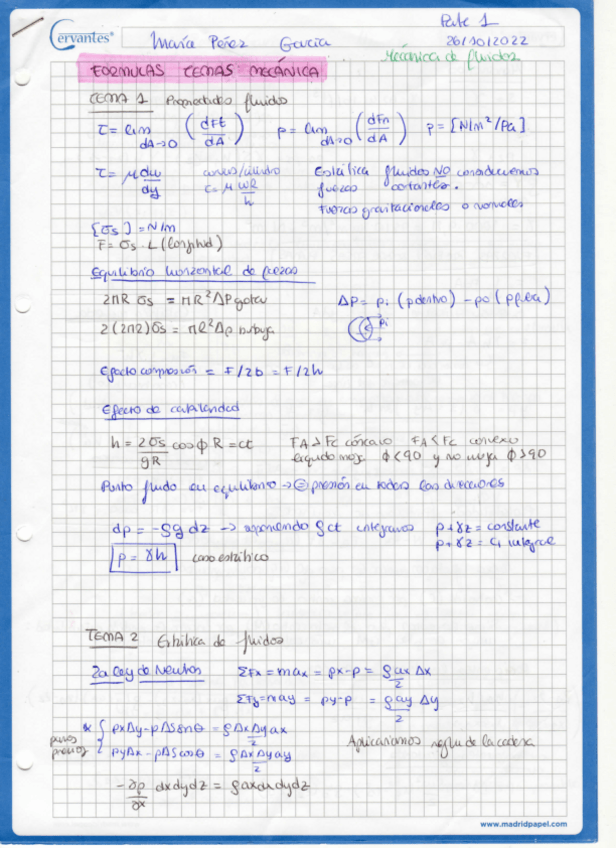 Parte 1
Cervantes®
María Pérez García
26/10/2022
Mecánica de fluidos
FORMULAS TEMAS MECÁNICA
TEMA 1 Propiedades fluidos
τ = lim dA→0 (dFt/dA) p = lim dA→0 (dFn/dA) p = [N/m²/Pa]
τ = μ du/dy
τ = μ ωR/h
Estática fluidos NO consideramos
fuerzas cortantes.
Fuerzas gravitacionales o normales
[σs] = N/m
F = σs · L (longitud)
Equilibrio horizontal de fuerzas
2πR σs = πR²ΔP gota
ΔP = pi (p dentro) - po (p fuera)
2(2πR)σs = πR²Δp burbuja
pi
Efecto compresión = F/2b = F/2h
Efecto de capilaridad
h = 2σs/gR cos φ R = ct
FA > Fc cóncavo FA < Fc convexo
líquido moja φ<90 y no moja φ>90
Punto fluido en equilibrio → = presión en todas las direcciones
dp = -ρg dz → suponiendo ρ ct integramos
p + γz = constante
p + γz = C1 integral
p = γh caso estático
TEMA 2 Estática de fluidos
2a Ley de Newton ΣFx = max = px-p = ρ ax/2 Δx
ΣFy = may = py-p = ρ ay/2 Δy
* { pxΔy - pΔs senθ = ρ ΔxΔy ax/2
pyΔx - pΔs cosθ = ρ ΔxΔy ay/2
Aplicaríamos regla de la cadena
-∂p/∂x dxdydz = ρ ax dxdydz
www.madridpapel.com